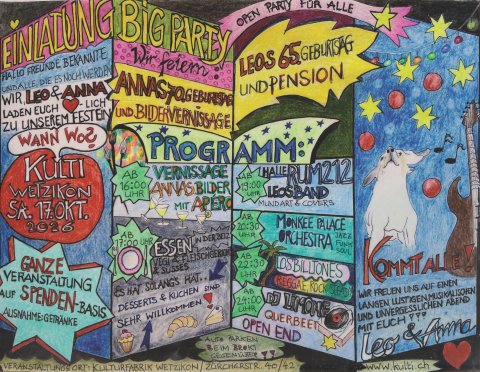 EINLADUNG
HALLO FREUNDE BEKANNTE
UND ALLE, DIE ES NOCH WERDEN
WIR, LEO & ANNA
LADEN EUCH LICH
ZU UNSEREM FESTEIN
WANN WO?
KULTI
WETZIKON
SA. 17. OKT.
2026
GANZE
VERANSTALTUNG
AUF SPENDEN-BASIS
AUSNAHME: GETRÄNKE
BIG PARTY
Wir feiern:
ANNAS 70. GEBURTSTAG
UND BILDERVERNISSAGE
OPEN PARTY FÜR ALLE
LEOS 65. GEBURTSTAG
UND PENSION
PROGRAMM:
AB
16:00
UHR
VERNISSAGE
ANNAS BILDER
MIT APÉRO
AB
17:00
UHR
ESSEN
IN DER BEIZ
VEGI & FLEISCHGERICHTE
& SÜSSES
ES HAT SOLANGS HAT..
DESSERTS & KUCHEN SIND
SEHR WILLKOMMEN!
AB
19:00
UHR
HALLE RUM212
LEOS BAND
MUNDART & COVERS
AB
20:30
UHR
MONKEE PALACE
ORCHESTRA
JAZZ
FUNK
SOUL
AB
22:30
UHR
LOS BILLJONES
REGGAE ROCK
AB
24:00
UHR
DJ LIMONE
QUERBEET
OPEN END
AUTO PARKEN
BEIM BROKI
GEGENÜBER
KOMMT ALLE!
WIR FREUEN UNS AUF EINEN
LANGEN LUSTIGEN MUSIKALISCHEN
UND UNVERGESSLICHEN ABEND
MIT EUCH ???
Leo & Anna
VERANSTALTUNGSORT: KULTURFABRIK WETZIKON/ ZÜRCHERSTR. 40/42
www.kulti.ch